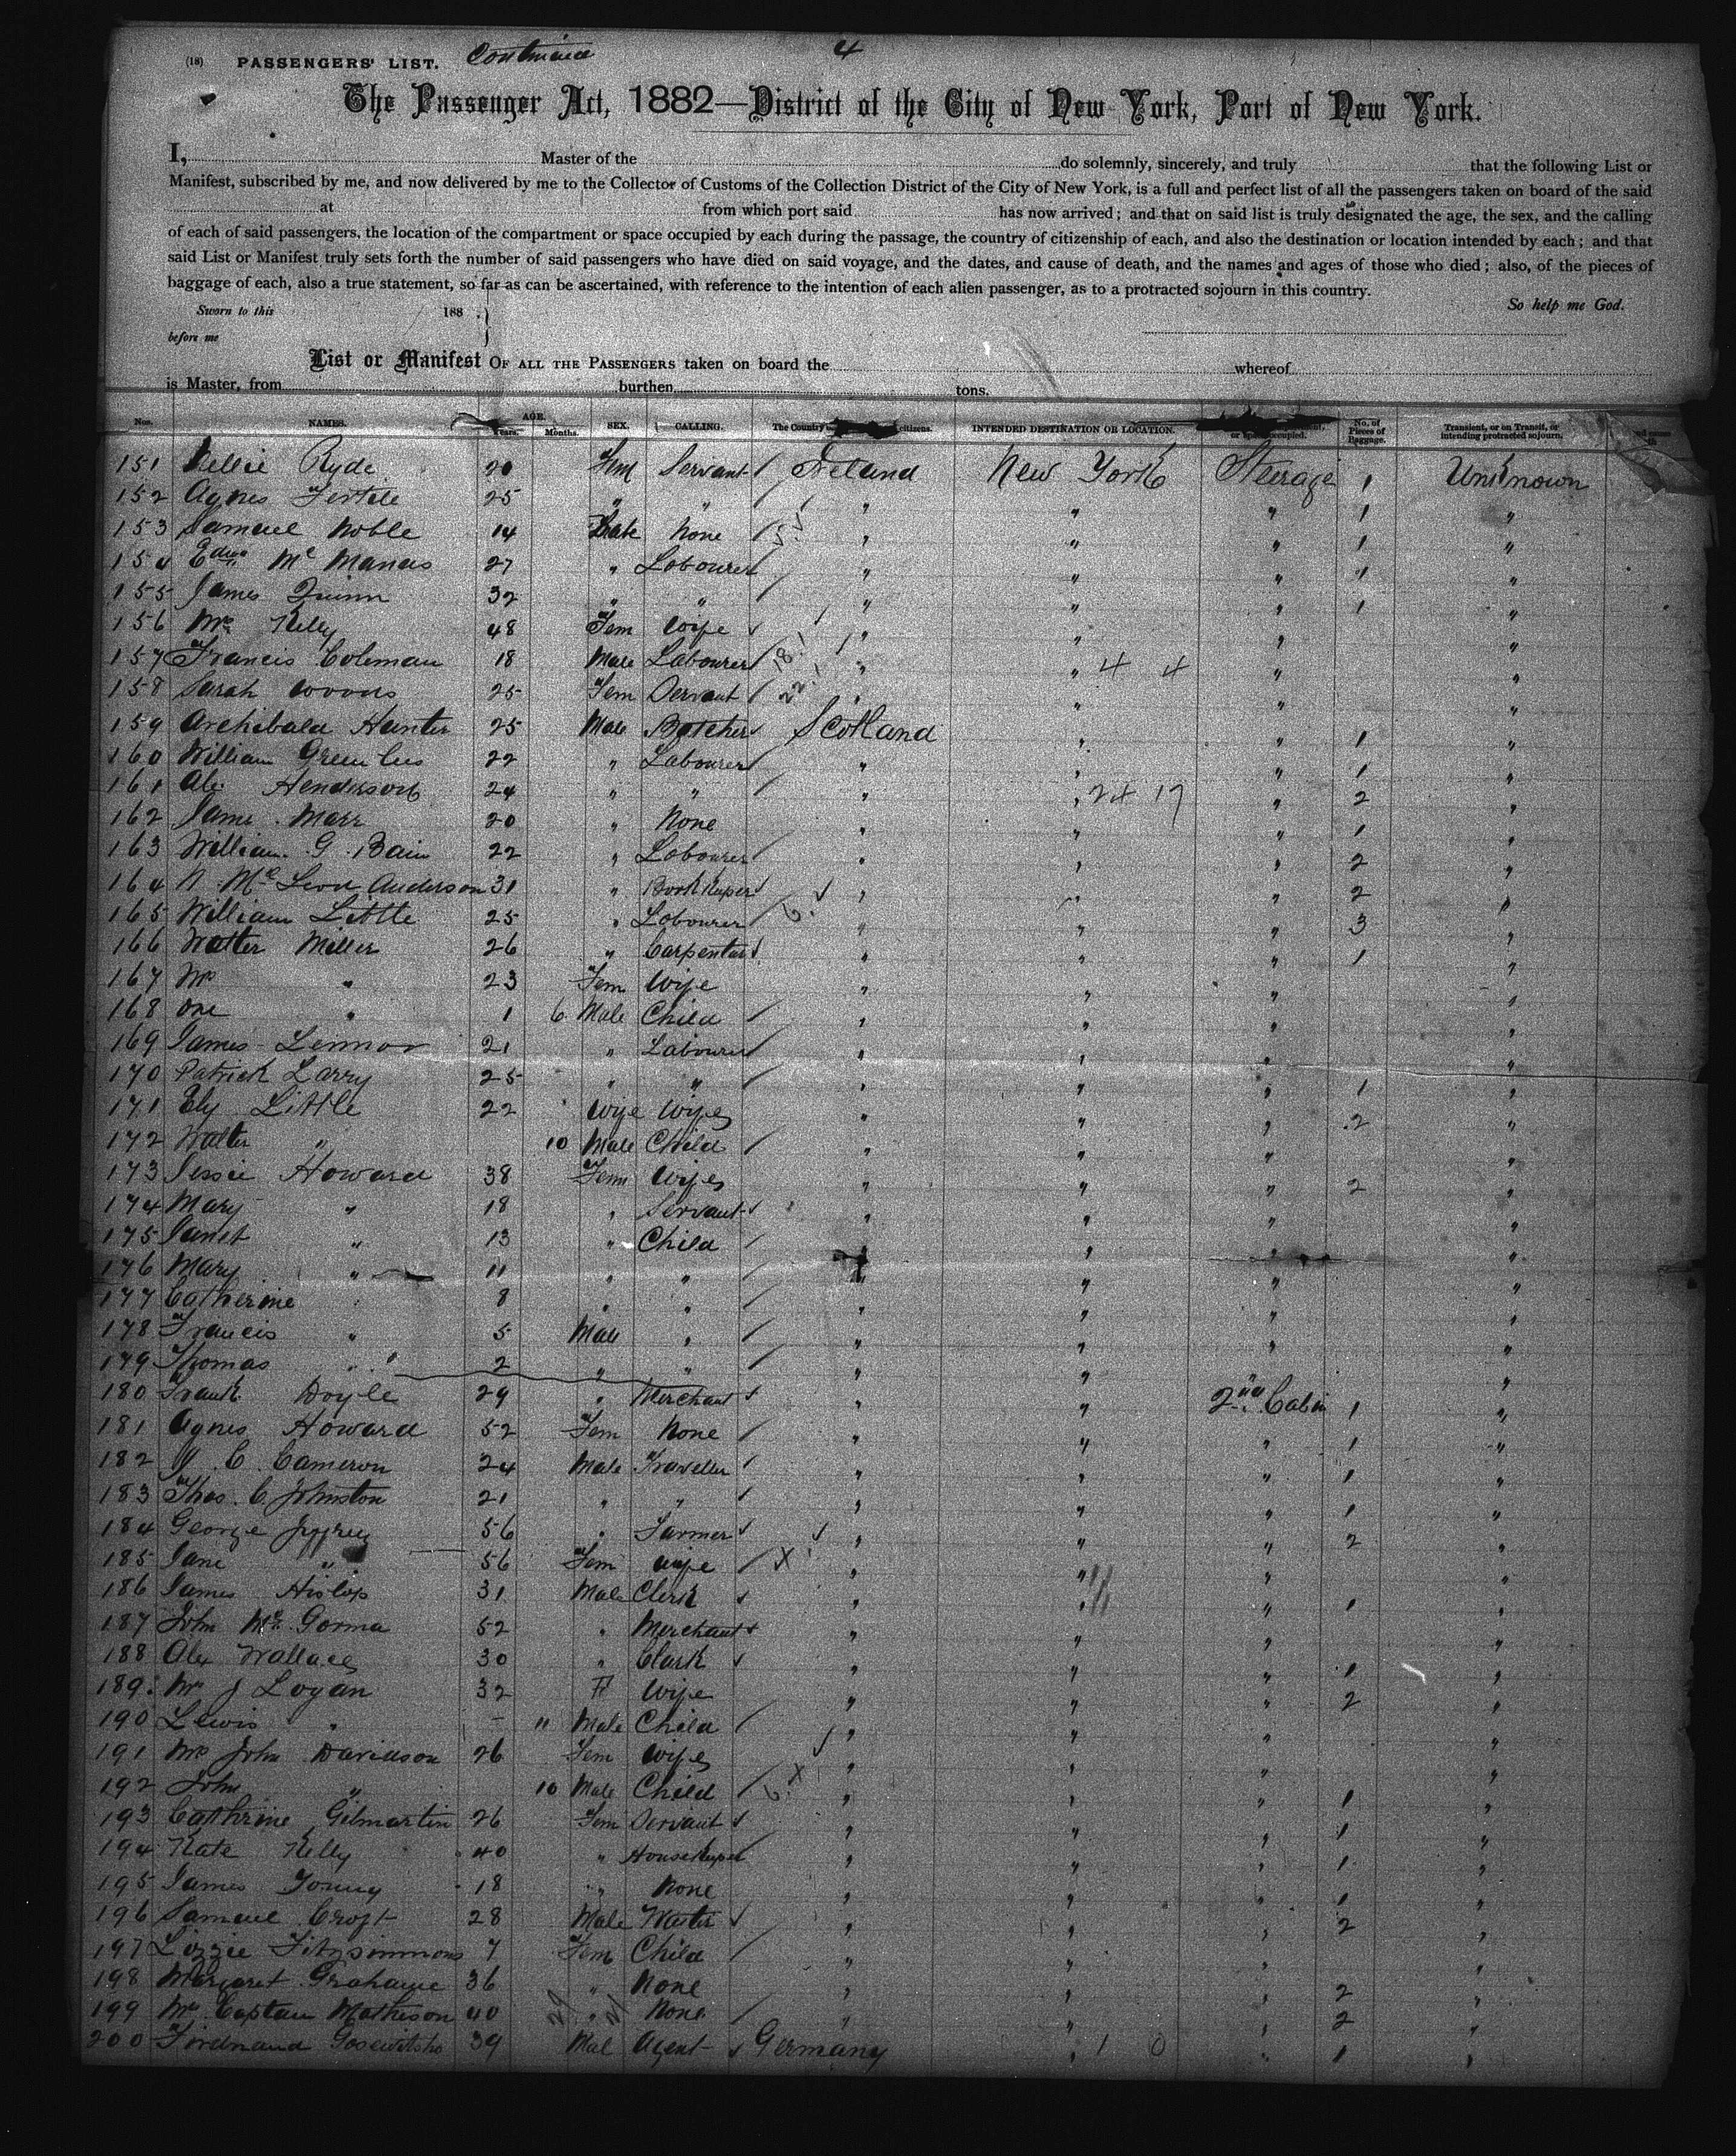 (18) PASSENGERS' LIST. Continued 4
The Passenger Act, 1882—District of the City of New York, Port of New York.
I, Master of the do solemnly, sincerely, and truly that the following List or
Manifest, subscribed by me, and now delivered by me to the Collector of Customs of the Collection District of the City of New York, is a full and perfect list of all the passengers taken on board of the said
at from which port said has now arrived; and that on said list is truly designated the age, the sex, and the calling
of each of said passengers, the location of the compartment or space occupied by each during the passage, the country of citizenship of each, and also the destination or location intended by each; and that
said List or Manifest truly sets forth the number of said passengers who have died on said voyage, and the dates, and cause of death, and the names and ages of those who died; also, of the pieces of
baggage of each, also a true statement, so far as can be ascertained, with reference to the intention of each alien passenger, as to a protracted sojourn in this country.
So help me God.
Sworn to this 188
before me
List or Manifest OF ALL THE PASSENGERS taken on board the whereof
is Master, from burthen tons.
Nos. NAMES. AGE. Years. Months. SEX. CALLING. The Country citizens. INTENDED DESTINATION OR LOCATION. or space occupied. No. of Pieces of Baggage. Transient, or on Transit, or intending protracted sojourn.
151 Nellie Ryde 20 Fem Servant Ireland New York Steerage 1 Unknown
152 Agnes 25 " " " " " 1 "
153 Samuel Noble 14 Male None " " " 1 "
154 Edwd Mc Manus 27 " Labourer " " " 1 "
155 James Quinn 32 " " " " " 1 "
156 Mrs Kelly 48 Fem Wife " " " "
157 Francis Coleman 18 Male Labourer " " 4 4 " "
158 Sarah Woods 25 Fem Servant " " "
159 Archibald Hunter 25 Male Butcher Scotland " " 1 "
160 William Greenlees 22 " Labourer " " " 1 "
161 Alex Henderson 24 " " " " 24 17 " 2 "
162 Jame Marr 20 " None " " " 1 "
163 William G. Bain 22 " Labourer " " " 2 "
164 N. McLeod Anderson 31 " Bookkeeper " " " 2 "
165 William Little 25 " Labourer " " " 3 "
166 Walter Miller 26 " Carpenter " " " 1 "
167 Mrs " 23 Fem Wife " " " "
168 One " 1 6 Male Child " " " "
169 James Lennox 21 " Labourer " " " "
170 Patrick Larry 25 " " " " " 1 "
171 Ely Little 22 Wife Wife " " " 2 "
172 Walter " 10 Male Child " " " "
173 Jessie Howard 38 Fem Wife " " " 2 "
174 Mary " 18 " Servant " " " "
175 Janet " 13 " Child " " " "
176 Mary " 11 " " " " " "
177 Catherine " 8 " " " " " "
178 Francis " 5 Male " " " " "
179 Thomas " 2 " " " " "
180 Frank Doyle 29 " Merchant " " 2nd Cabin 1 "
181 Agnes Howard 52 Fem None " " " 1 "
182 J. C. Cameron 24 Male Traveller " " " 1 "
183 Thos. C. Johnston 21 " " " " " 1 "
184 George Jeffrey 56 " Farmer " " " 2 "
185 Jane " 56 Fem Wife " " " "
186 James Hislop 31 Male Clerk " " " 1 "
187 John Mc Gorma 52 " Merchant " " " "
188 Alex Wallace 30 " Clark " " " 1 "
189 Mrs J Logan 32 F Wife " " " 2 "
190 Lewis " - 11 Male Child " " " "
191 Mrs John Davidson 26 Fem Wife " " " "
192 John " 10 Male Child " " " 1 "
193 Cathrine Gilmartin 26 Fem Servant " " " 1 "
194 Kate Kelly 40 " Housekeeper " " " 1 "
195 James Young 18 " None " " " 1 "
196 Samuel Croft 28 Male Waiter " " " 2 "
197 Lizzie Fitzsimmons 7 Fem Child " " " "
198 Margaret Grahame 36 " None " " " 2 "
199 Mrs Captain Mathieson 40 " None " " " 2 "
200 Ferdinand 39 Mal Agent Germany " 1 0 " 1 "